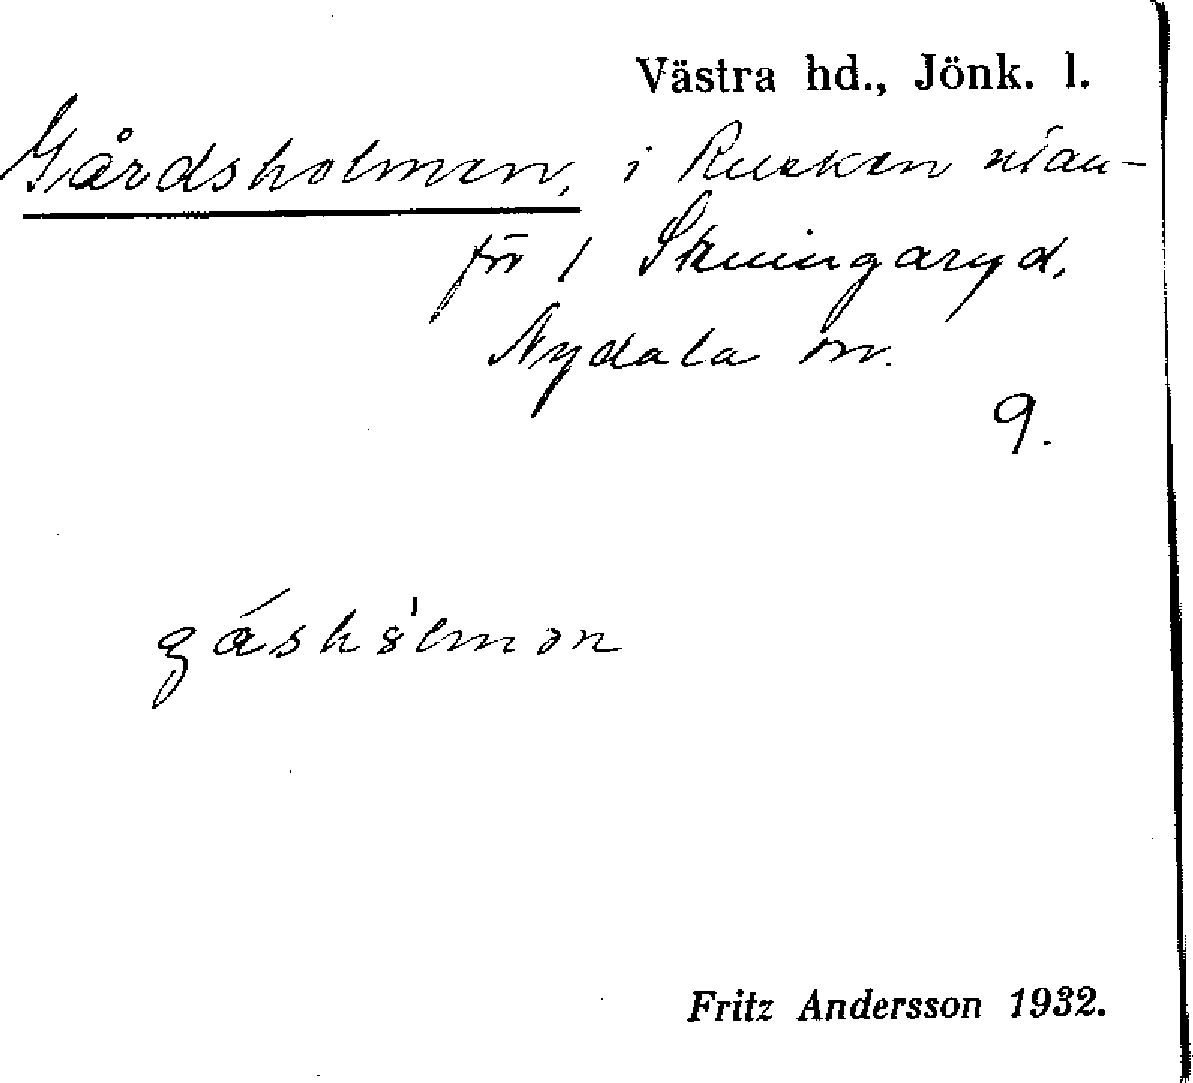 Västra hd., Jönk. l.
Gårdsholmen, i Rusken utan-
för 1 Skuingaryd,
Nydala sn.
9.
gásholmən
Fritz Andersson 1932.